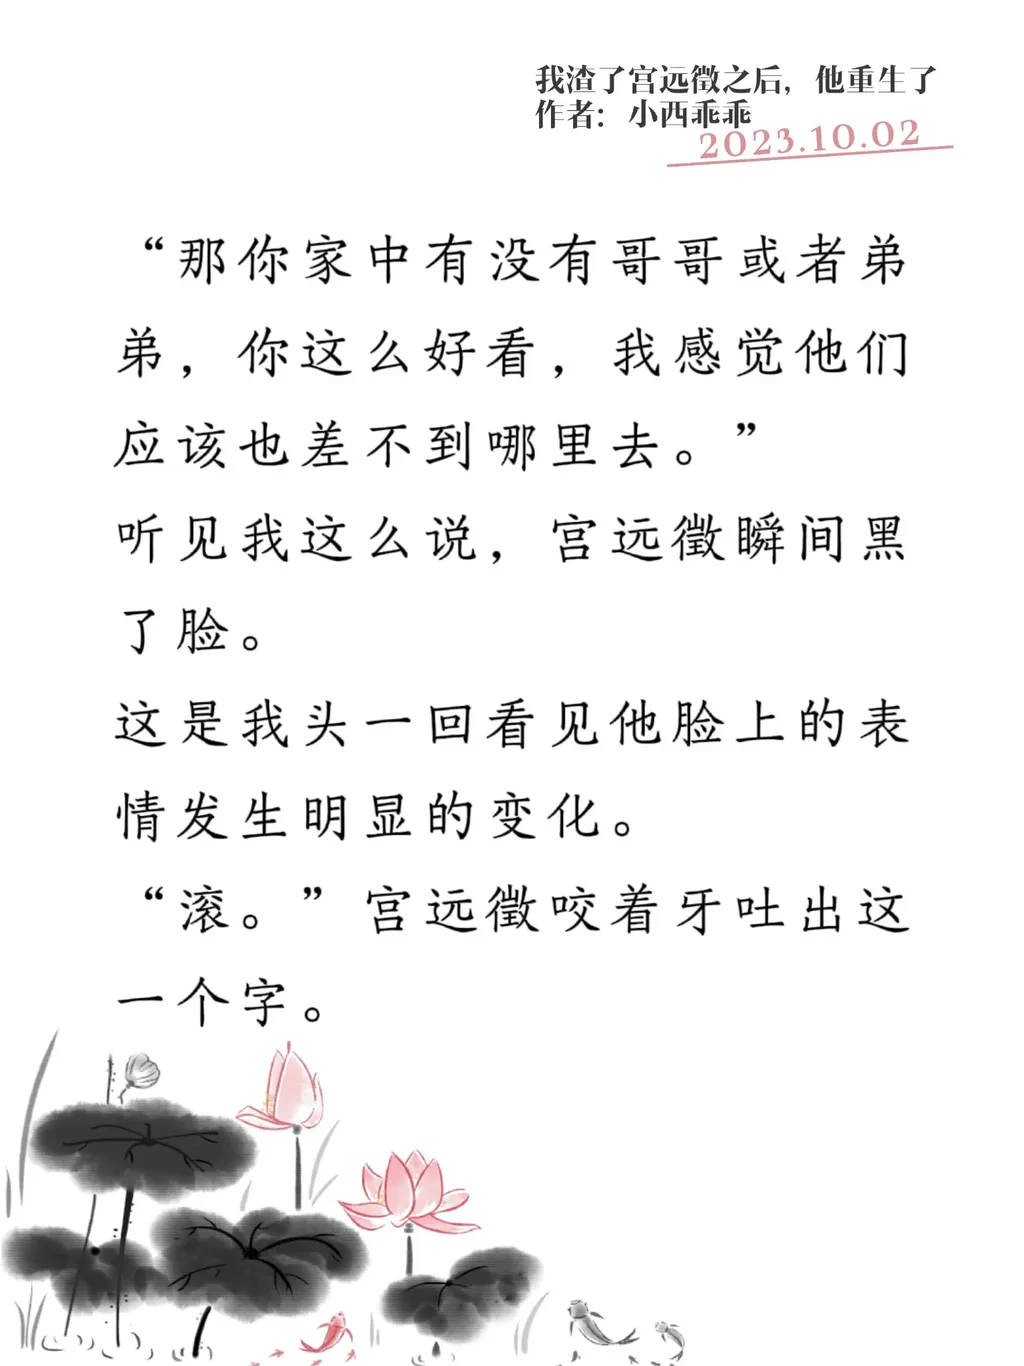 我渣了宫远徵之后，他重生了
作者：小西乖乖
2023.10.02
“那你家中有没有哥哥或者弟
弟，你这么好看，我感觉他们
应该也差不到哪里去。”
听见我这么说，宫远徵瞬间黑
了脸。
这是我头一回看见他脸上的表
情发生明显的变化。
“滚。”宫远徵咬着牙吐出这
一个字。